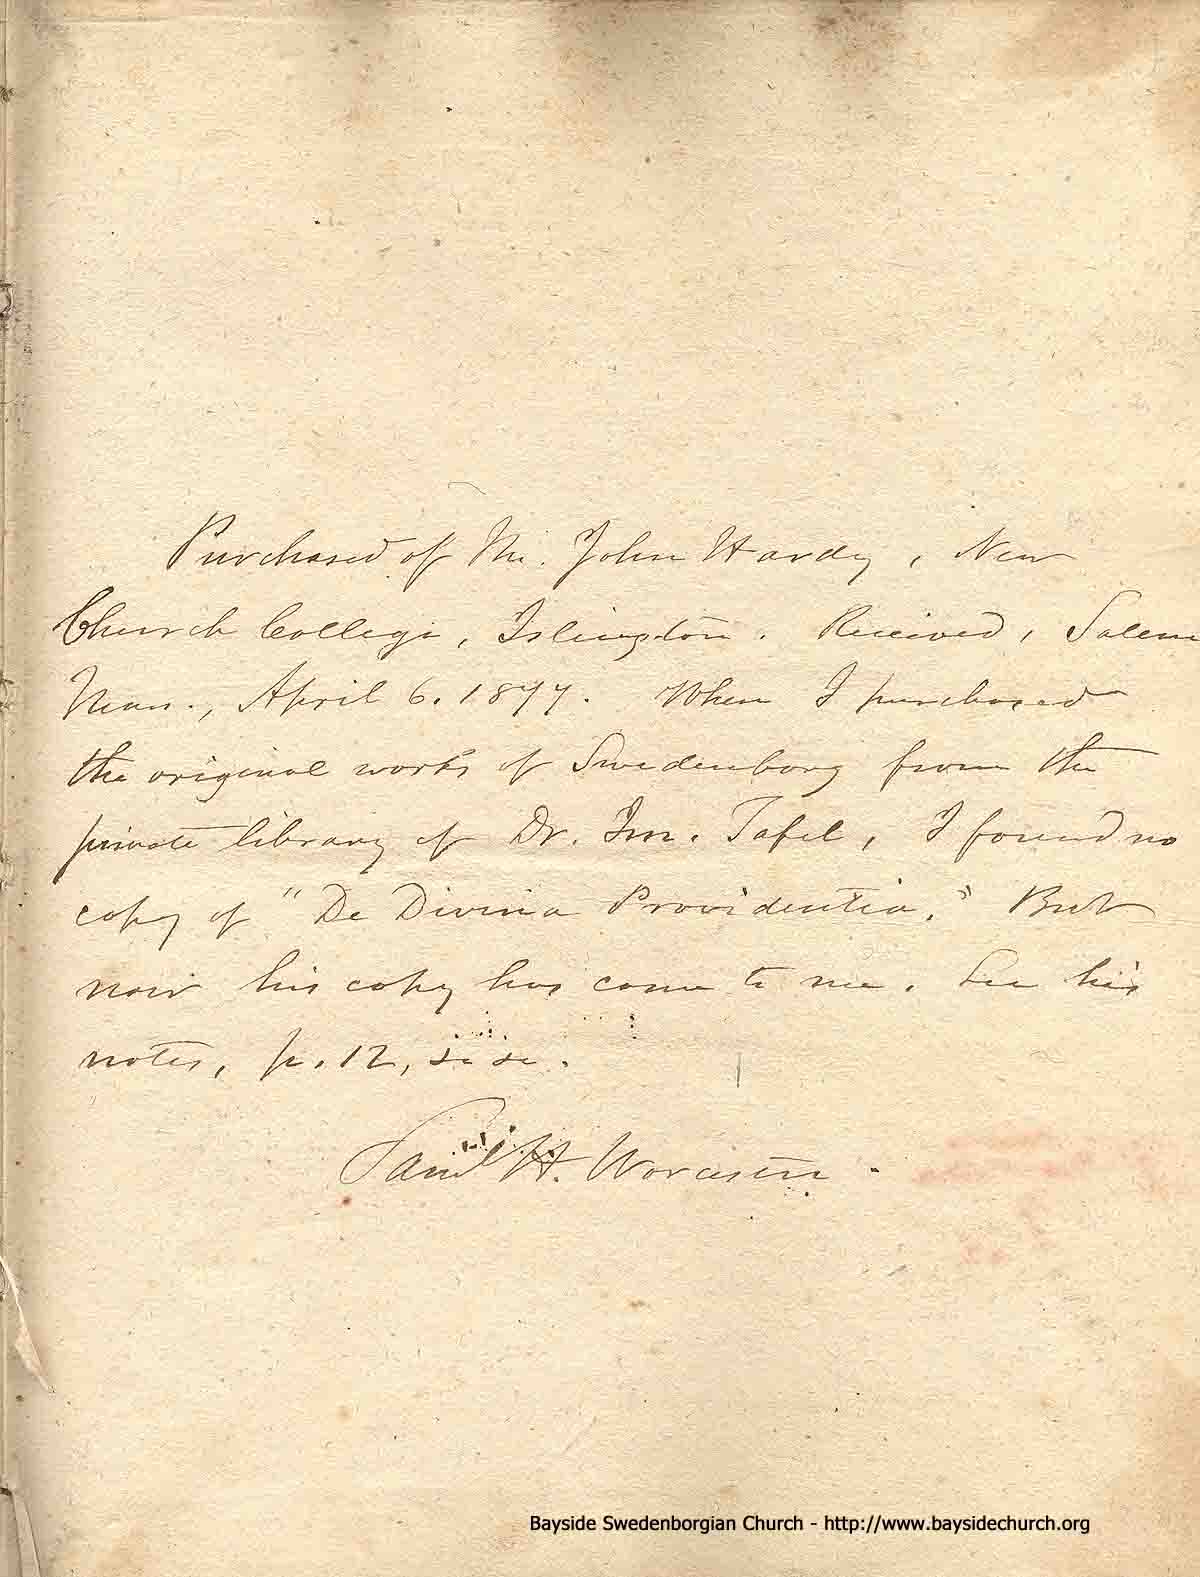 Purchased of Mr. John Hardy, New
Church College, Islington. Received, Salem
Mass., April 6. 1877. When I purchased
the original works of Swedenborg from the
private library of Dr. Im. Tafel, I found no
copy of "De Divina Providentia." But
now his copy has come to me. See his
notes, p. 12, &c &c.
Saml H. Worcester.
Bayside Swedenborgian Church - http://www.baysidechurch.org